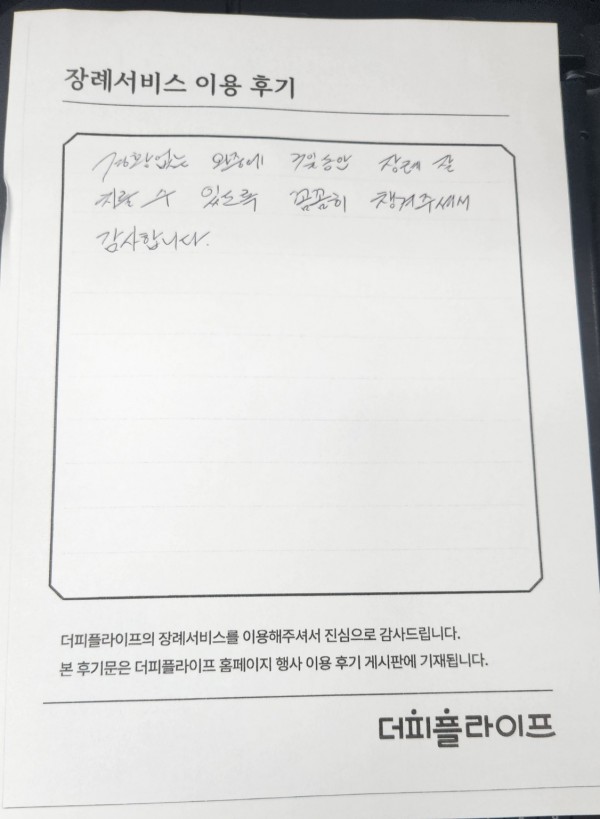 장례서비스 이용 후기
경황없는 와중에 3일동안 장례 잘
치를 수 있도록 꼼꼼히 챙겨주셔서
감사합니다.
더피플라이프의 장례서비스를 이용해주셔서 진심으로 감사드립니다.
본 후기문은 더피플라이프 홈페이지 행사 이용 후기 게시판에 기재됩니다.
더피플라이프